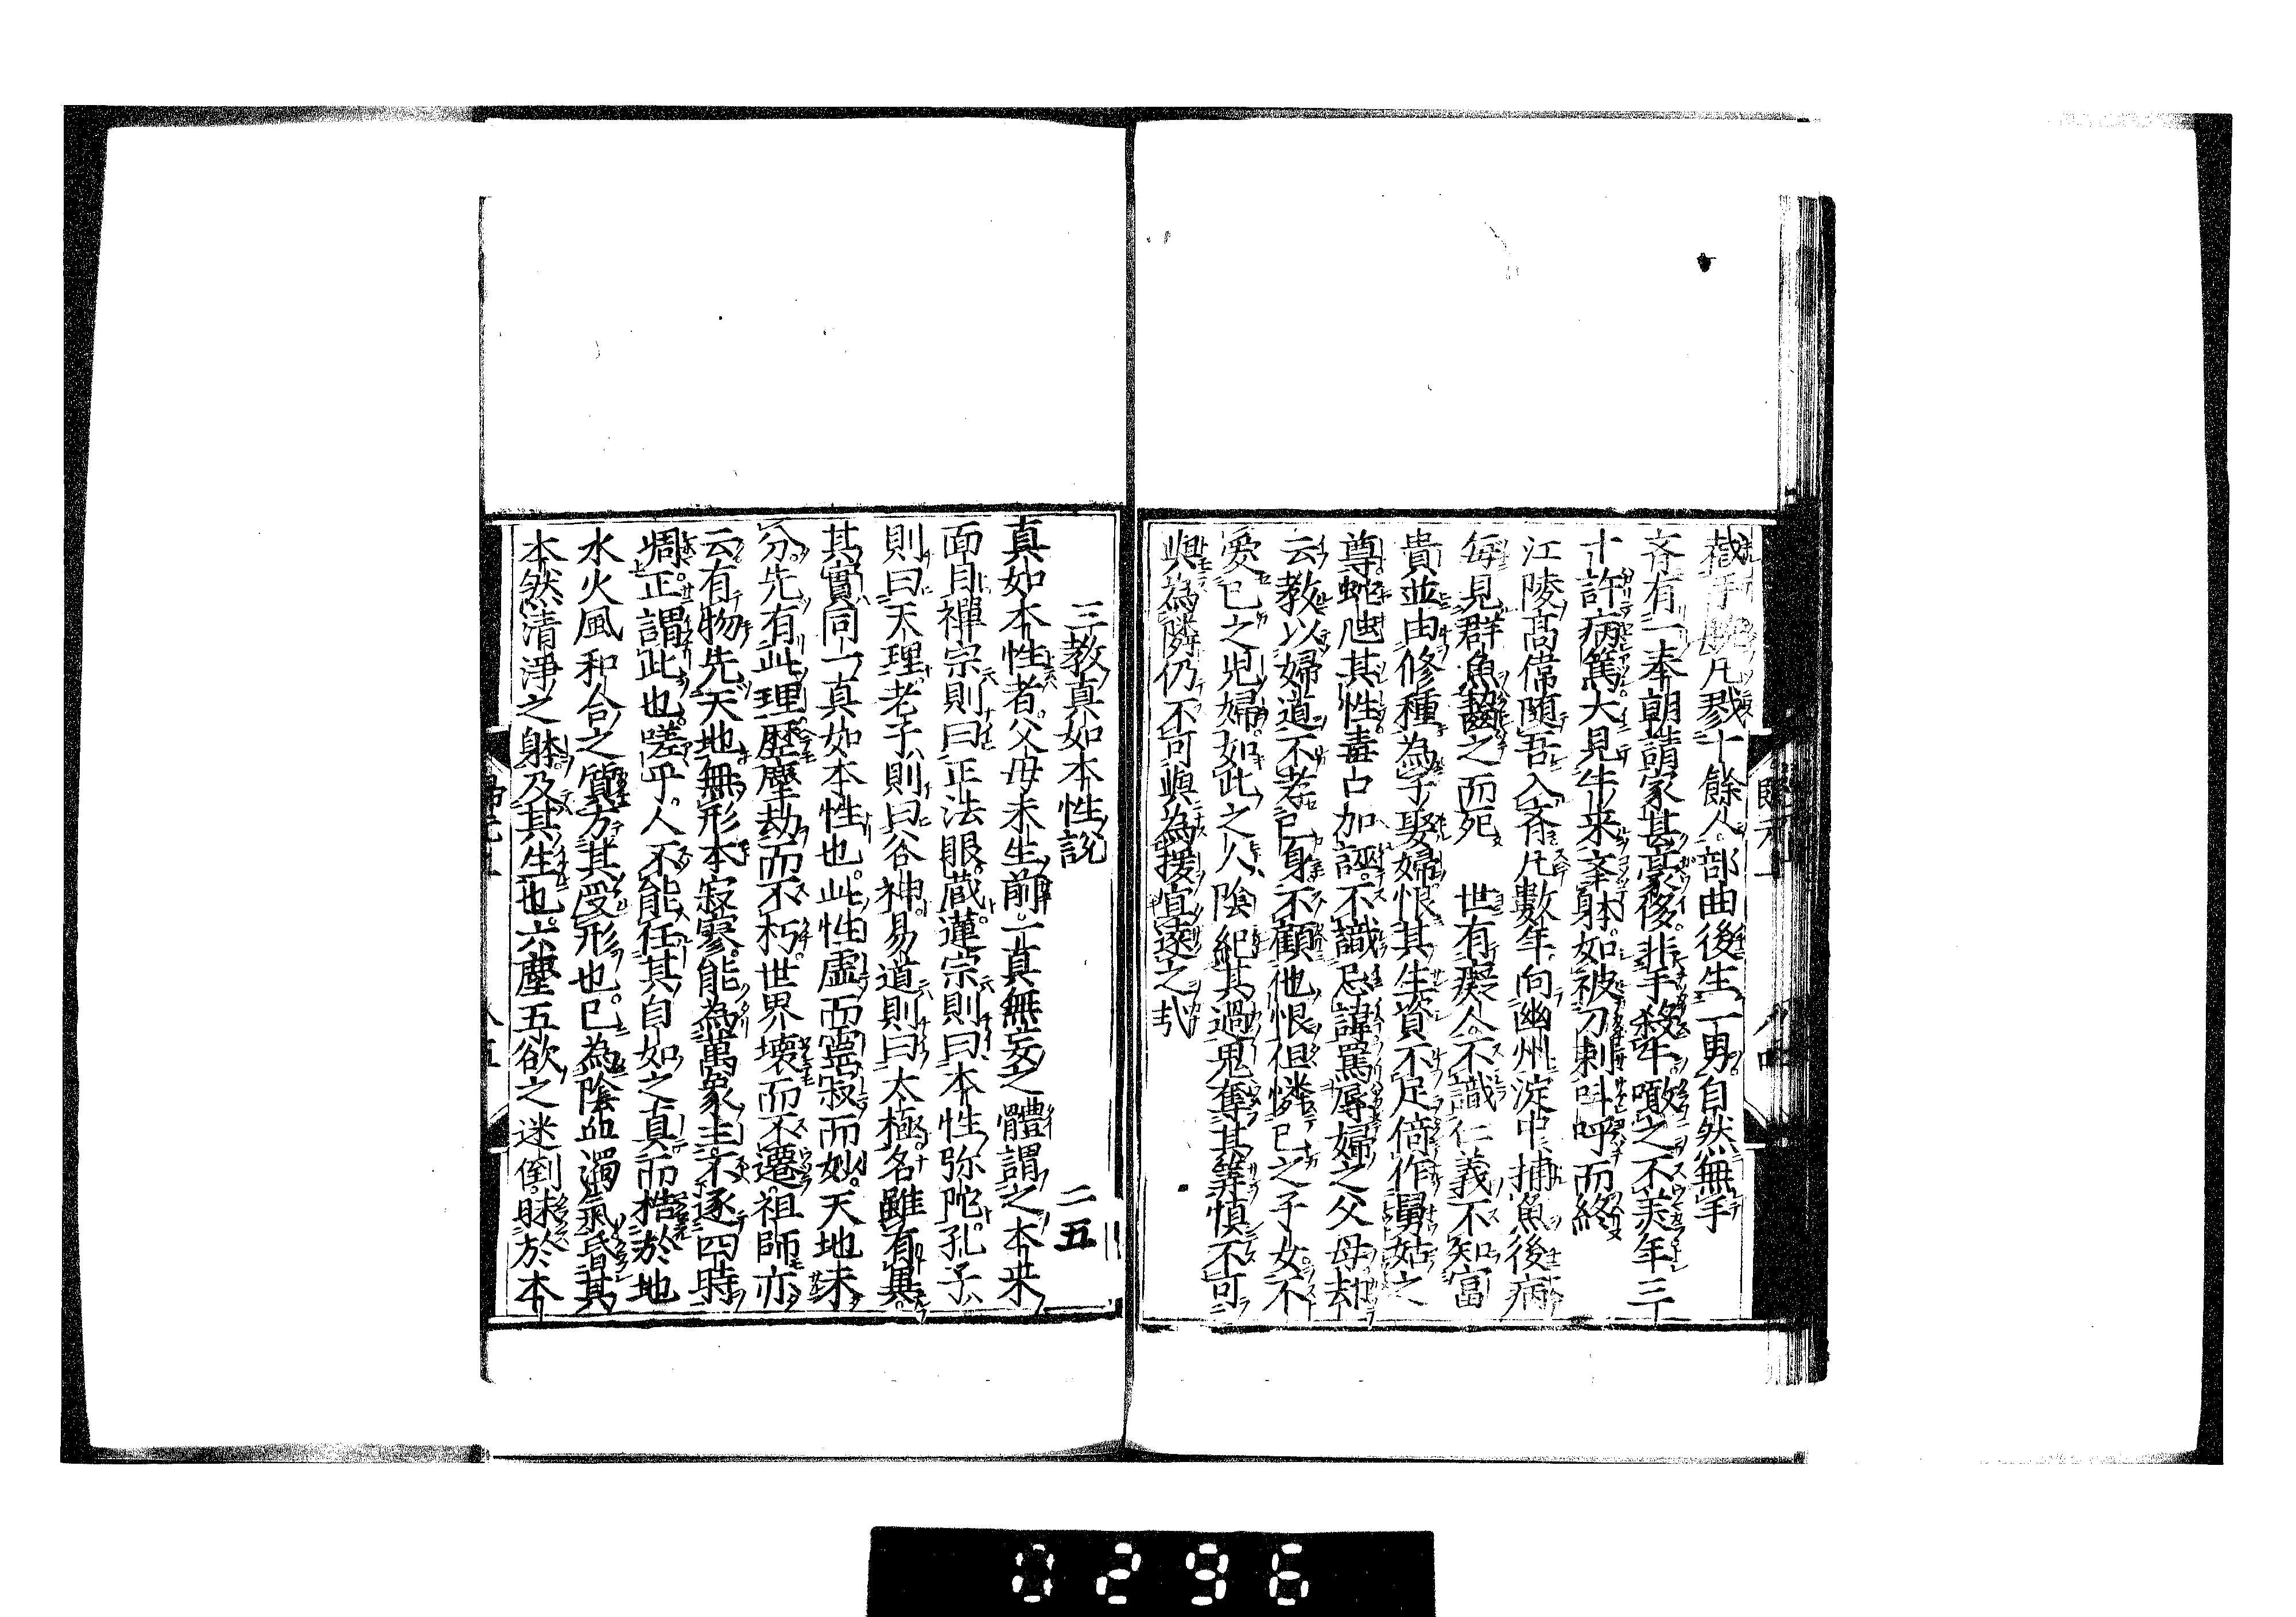 截手腕凡戮十餘人部曲後生一男自然無手
斉有一奉朝請家甚豪侈非手殺牛噉之不羙年三
十許病篤大見牛来挙躰如被刀刺叫呼而終
江陵髙偉随吾入斉凡數年向幽州淀中捕魚後病
毎見群魚齧之而死 世有癡人不識仁義不知富
貴並由修種為子娶婦恨其生資不足倚作舅姑之
尊蛇虺其性毒口加誣不識忌諱罵辱婦之父母却
云教以婦道不孝己身不顧他恨但憐己之子女不
愛己之児婦如此之人陰紀其過鬼奪其筭慎不可
與為隣仍不可與為援宜遠之㢤
三教真如本性説 二五
真如本性者父母未生前一真無妄之體謂之本来
面目禅宗則曰正法眼蔵蓮宗則曰本性弥陀孔子
則曰天理老子則曰谷神易道則曰太極名雖有異
其實同一真如本性也此性虚而霊寂而妙天地未
分先有此理歴塵劫而不朽世界壊而不遷祖師亦
云有物先天地無形本寂寥能為萬象主不逐四時
凋正謂此也嗟乎人不能任其自如之真而梏於地
水火風和合之質方其受形也已為陰血濁氣昏其
本然清淨之躰及其生也六塵五欲之迷倒眯於本
0296